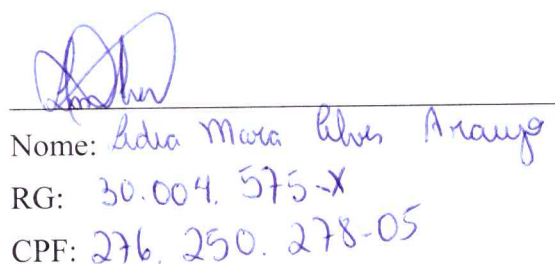 Nome: Lidia Mara Alves Araujo
RG: 30.004.575-X
CPF: 276.250.278-05